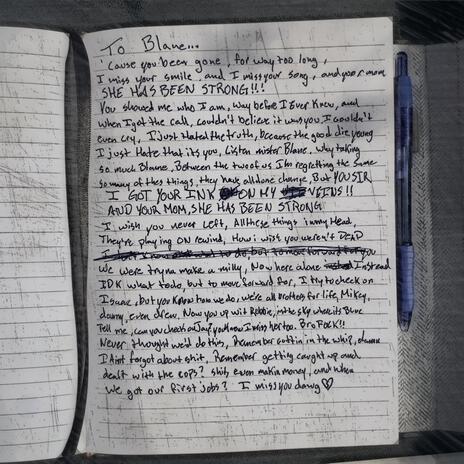 To Blane...
'cause you been gone, for way too long,
I miss your smile, and I miss your song, and your mom
SHE HAS BEEN STRONG!!!
You showed me who I am, way before I Ever Knew, and
when I got the call, couldn't believe it was you, I couldn't
even cry, I just Hated the truth, because the good die young
I just Hate that its you, Listen mister Blane. Why taking
so much Blame, Between the two of us Im regretting the same
so many of thes things, they have all done change, But YOU SIR,
I GOT YOUR INK ON MY VEINS!!
AND YOUR MOM, SHE HAS BEEN STRONG
I wish you never Left, All these things in my Head,
They're playing ON rewind, How i wish you weren't DEAD
We were tryna make a milly, Now here alone Instead
IDK what todo, but to move forward for, I try to check on
Isaac, but you Know how we do, we're all brothers for life, Mikey,
danny, even drew. Now you up wit Robbie, in the sky when its Blue
Tell me, can you check on Jay? you Know I miss her too. Bro FUCK!!
Never thought we'd do this, Remember gettin in the whip, damn
I Aint forgot about shit, Remember getting caught up and
dealt with the cops? shit, even makin money, and when
we got our first jobs? I miss you dawg ♡